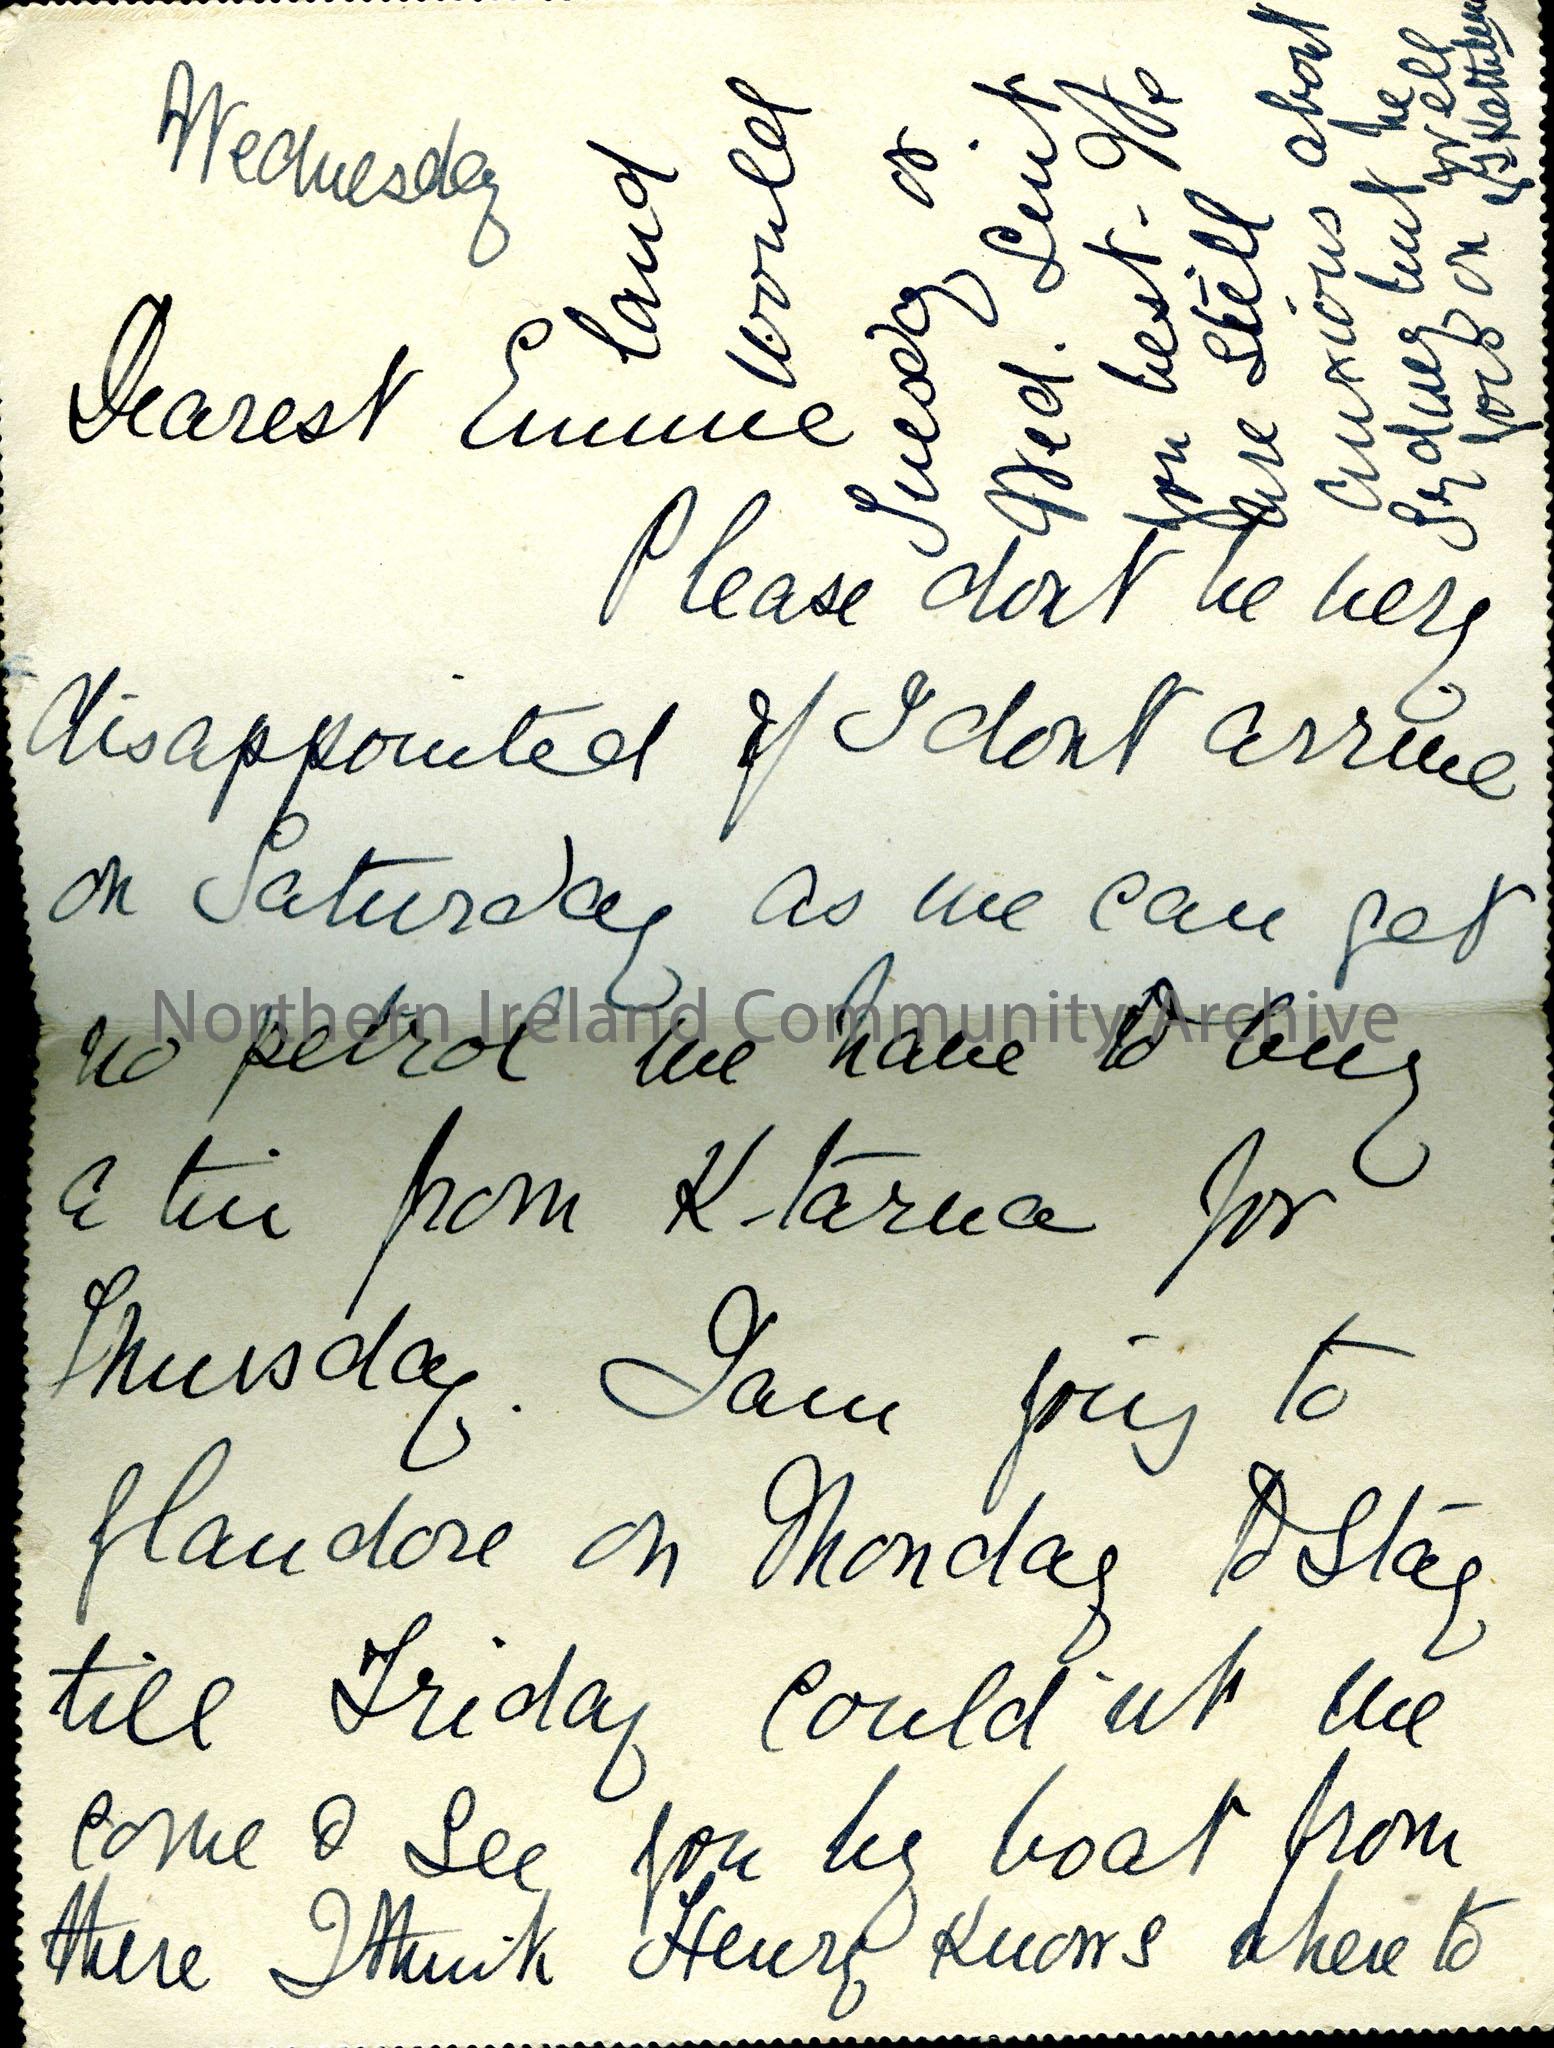 Wednesday
Dearest Emme
Please dont be very
disappointed if I dont arrive
on Saturday as we can get
no petrol we have to buy
a tin from K-tarna for
Thursday. I am going to
glandore on Monday to stay
till Friday could'nt we
come & see you by boat from
there I think Henry knows where to
land
would
Tuesday or
Wed. suit
you best - We
are still
anxious about
Sydney but he
for on well
Northern Ireland Community Archive